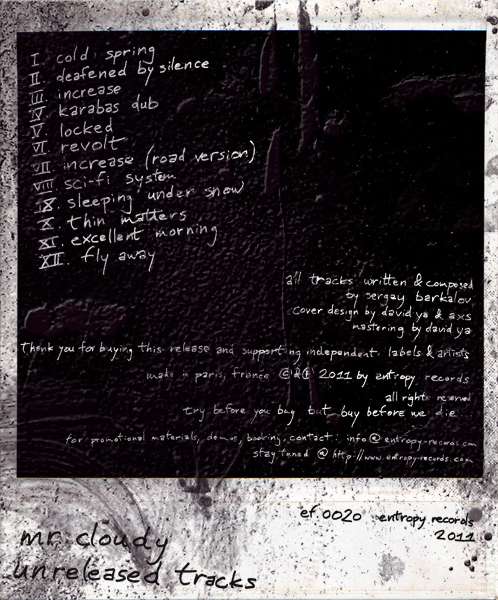 I. cold spring
II. deafened by silence
III. increase
IV. karabas dub
V. locked
VI. revolt
VII. increase (road version)
VIII. sci-fi system
IX. sleeping under snow
X. thin matters
XI. excellent morning
XII. fly away
all tracks written & composed
by sergay barkalov
cover design by david ya & axs
mastering by david ya
thank you for buying this release and supporting independent labels & artists
made in paris, france ©&℗ 2011 by entropy records
all rights reserved
try before you buy but buy before we die...
for promotional materials, demos, booking, contact: info@entropy-records.com
stay tuned @ http://www.entropy-records.com
ef.0020 entropy records
2011
mr. cloudy
unreleased tracks